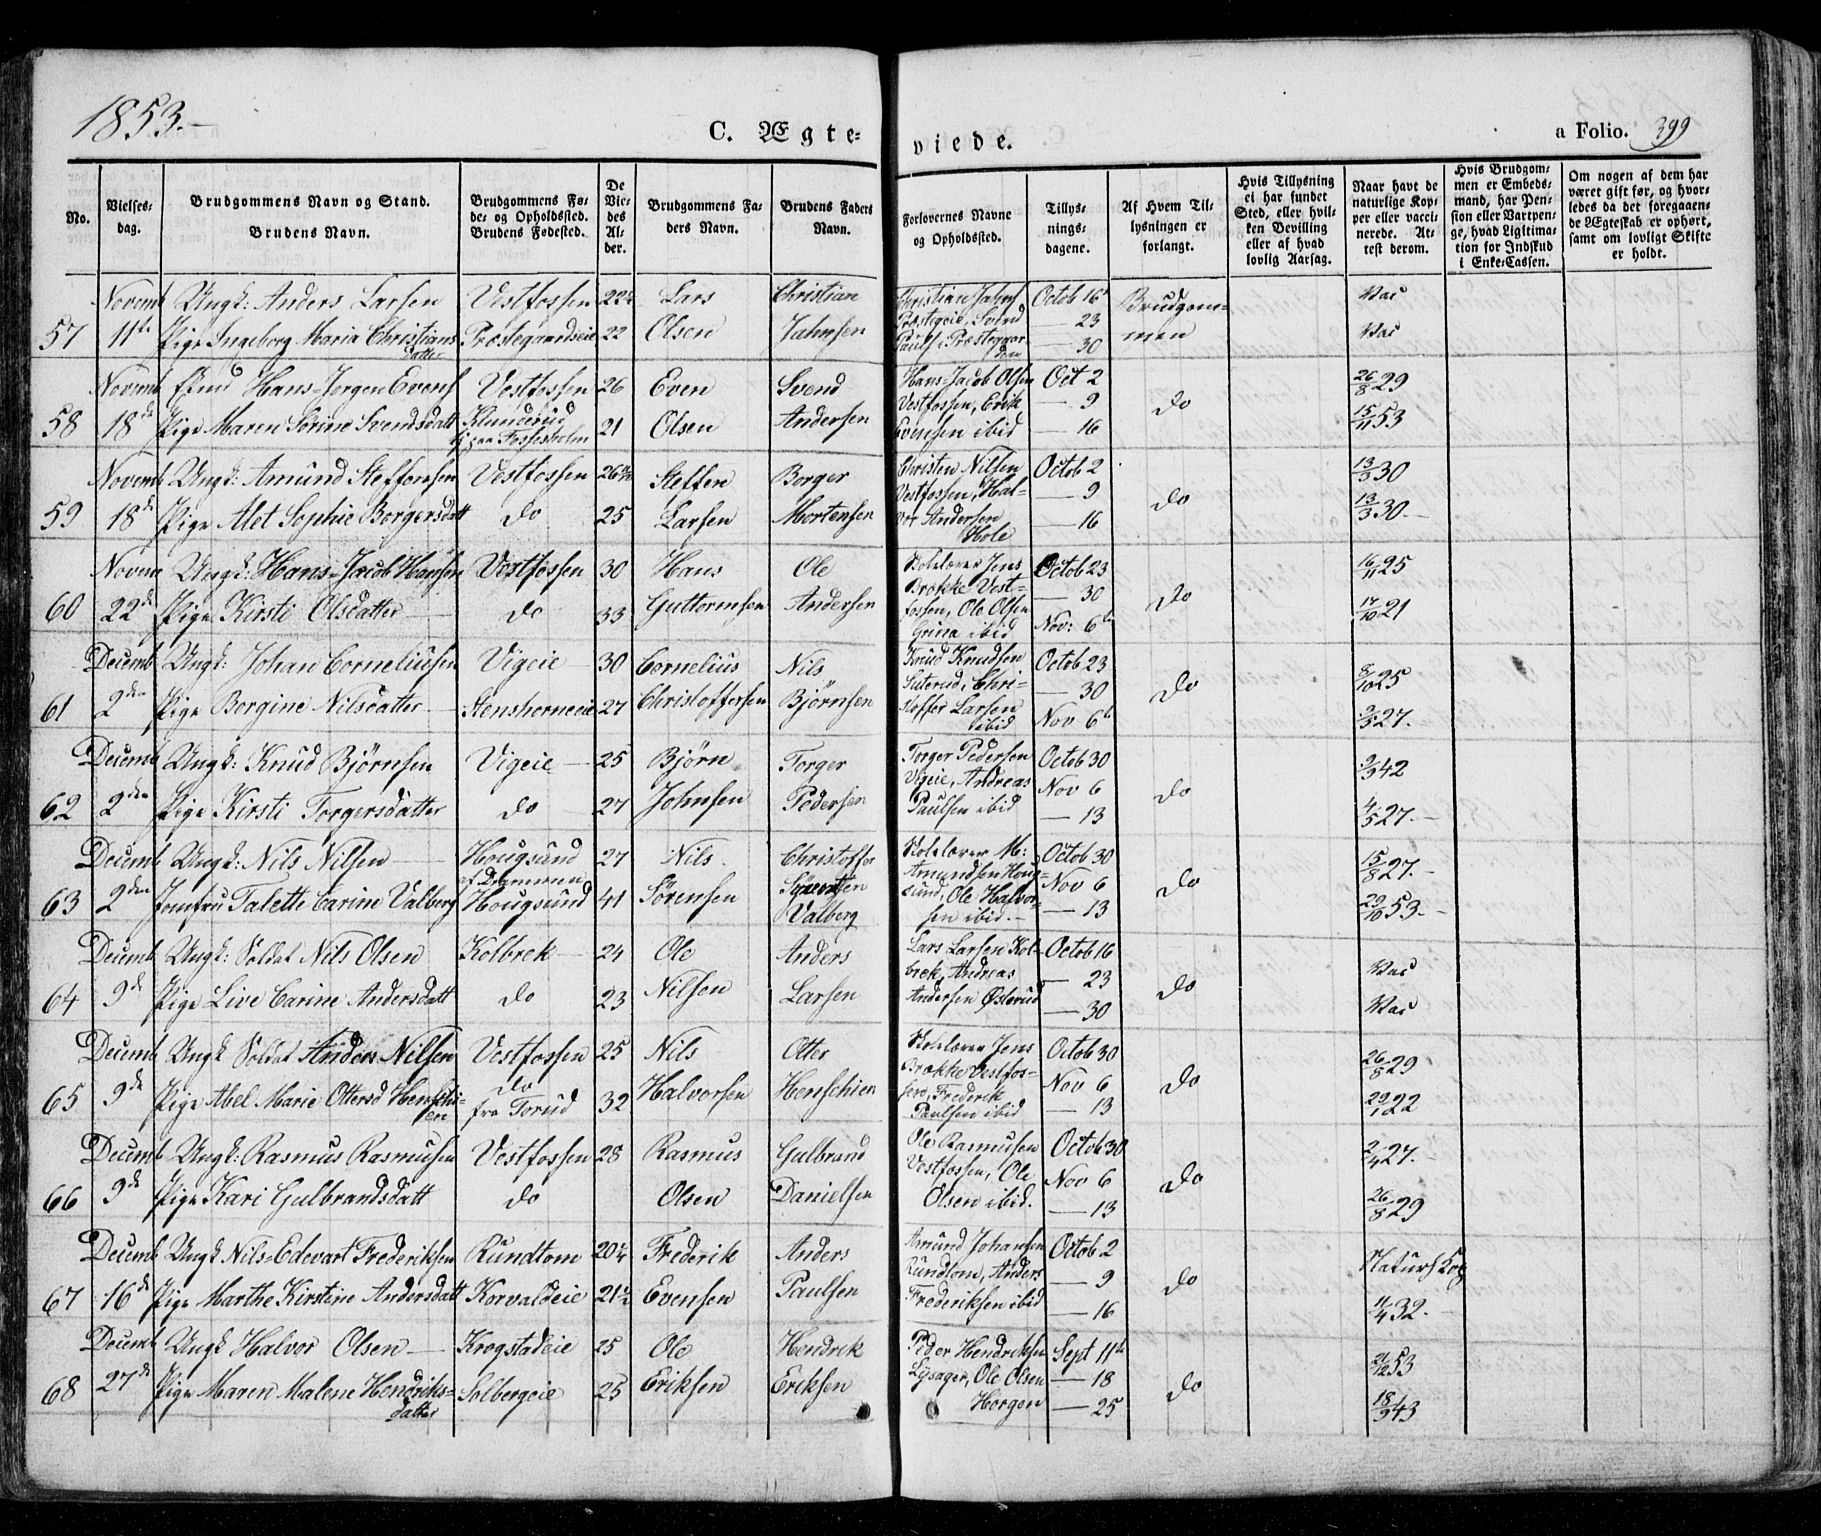 1853.
C. Ægteviede.
a Folio. 399
No.
Vielsesdag.
Brudgommens Navn og Stand.
Brudens Navn.
Brudgommens Føde- og Opholdssted.
Brudens Fødested.
De Viedes Alder.
Brudgommens Faders Navn.
Brudens Faders Navn.
Forlovernes Navne og Opholdssted.
Tillysningsdagene.
Af Hvem Tillysningen er forlangt.
Hvis Tillysning ei har fundet Sted, eller hvilken Bevilling eller af hvad lovlig Aarsag.
Naar havt de naturlige Kopper eller vaccinerede. Attest derom.
Hvis Brudgommen er Embedsmand, har Pension eller Vartpenge, hvad Ligitimation for Indskud i Enke-Cassen.
Om nogen af dem har været gift før, og hvorledes da det foregaaende Ægteskab er ophørt, samt om lovligt Skifte er holdt.
Novemb Ungk: Anders Larsen Vestfossen Lars Christian Christian Jahns Octob 16 Brudgom- Vac
57 11te Pige Ingeborg Maria Christians Præstegaardseie 22 Olsen Jahnsen Præstgeie, Svend — 23 men Vac
datter Pauls: Præstegaarden — 30
Novemb Hans-Jørgen Evens Vestfossen 26 Even Svend Hans-Jacob Olsen Oct 2 26/8 29
58 18de Pige Maren Sørine Svendsdatt Klunderud 21 Olsen Andersen Vestfossen, Erik — 9 do 15/11 53
Fossesholm Evensen ibid — 16
Novemb Ungk: Amund Steffensen Vestfossen 26 Steffen Borger Christen Nilsen Octob 2 13/3 30
59 18de Pige Alet Sophie Borgersdatt do 25 Larsen Mortensen Vestfossen, Hal- — 9 do 13/3 30.—
vor Andersen Hole — 16
Novem Ungk: Hans-Jacob Hansen Vestfossen 30 Hans Ole Skolelærer Jens Octob 23 16/11 25
60 22de Pige Kirsti Olsdatter do 33 Guttormsen Andersen Brække Vest- — 30 do 17/10 21
fossen, Ole Olsen Nov: 6te
Grina ibid
Decemb Ungk: Johan Corneliusen Vigeie 30 Cornelius Nils Knud Knudsen Octob 23 8/10 25
61 2den Pige Borgine Nilsdatter Stenshorneeie 27 Christoffersen Bjørnsen Sæterud, Chri- — 30 do 2/5 27.
stoffer Larsen ibid Nov 6te
Decemb Ungk: Knud Bjørnsen Vigeie 25 Bjørn Torger Torger Pedersen Octob 30 2/9 42
62 2den Pige Kirsti Torgersdatter do 27 Johnsen Pedersen Vigeie, Andreas Nov 6 do 4/5 27.—
Paulsen ibid — 13
Decemb Ungk: Nils Nilsen Hougsund 27 Nils Christoffer Skolelærer M: Octob 30 15/8 27.—
af Drammen
63 2den Jomfru Talette Carine Valberg Hougsund 41 Sørensen Valberg Amundsen Houg- Nov 6 do 29/10 53.—
sund, Ole Halvor- — 13
sen ibid.—
Decemb Ungk: Soldat Nils Olsen Kolbrek 24 Ole Anders Lars Larsen Kol- Octob 16 Vac
64 9de Pige Live Carine Andersdatt do 23 Nilsen Larsen brek, Andreas — 23 do Vac
Andersen Østerud — 30
Decemb Ungk Soldat Anders Nilsen Vestfossen 25 Nils Otter Skolelærer Jens Octob 30 26/8 29
65 9de Pige Abel Marie Ottersd Henschi- do 32 Halvorsen Henschien Brække Vestfos- Nov 6 do 29/1 22
en fra Torud sen, Frederik — 13
Paulsen ibid
Decemb Ungk: Rasmus Rasmusen Vestfossen 28 Rasmus Gulbrand Ole Rasmusen Octob 30 2/4 27.—
66 9de Pige Kari Gulbrandsdatt do Olsen Danielsen Vestfossen, Ole Nov 6 do 26/8 29
Olsen ibid. — 13
Decemb Ungk Nils-Edevart Frederiksen Rundtom 20 1/4 Frederik Anders Amund Johansen Octob 2 Naturs Kop
67 16de Pige Marthe Kirstine Andersdatt Korvaldeie 21 1/2 Evensen Paulsen Rundtom, Anders — 9 do 11/4 32.—
Frederiksen ibid — 16
Decemb Ungk Halvor Olsen Krogstadeie 25 Ole Hendrik Peder Hendriksen Sept 11te 2/12 53
68 27de Pige Maren Malene Hendriks- Solbergeie 25 Eriksen Eriksen Lysager, Ole Olsen — 18 do 18/9 43
datter Horgen — 25